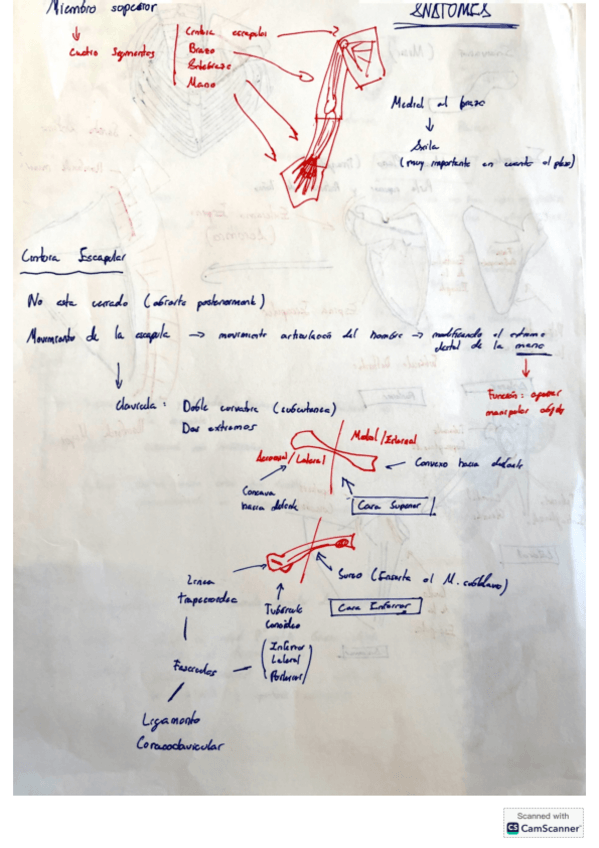 Miembro superior
ANATOMÍA
Cuatro segmentos
Cintura escapular
Brazo
Antebrazo
Mano
Medial al brazo
Axila
(muy importante en cuanto al paso)
Cintura Escapular
No esta cerrado (abierta posteriormente)
Movimiento de la escapula → movimiento articulación del hombro → modificando el extremo
distal de la mano
Función: agarrar
manipular objetos
Clavícula: Doble curvatura (subcutanea)
Dos extremos
Acromial/Lateral
Medial/Esternal
Concava
hacia delante
Convexo hacia delante
Cara Superior
Linea
trapezoidea
Tubérculo
conoideo
Surco (Inserta el M. subclavio)
Cara Inferior
(Inferior
Lateral
Posterior)
Fascículos
Ligamento
Coracoclavicular
Scanned with
CS CamScanner